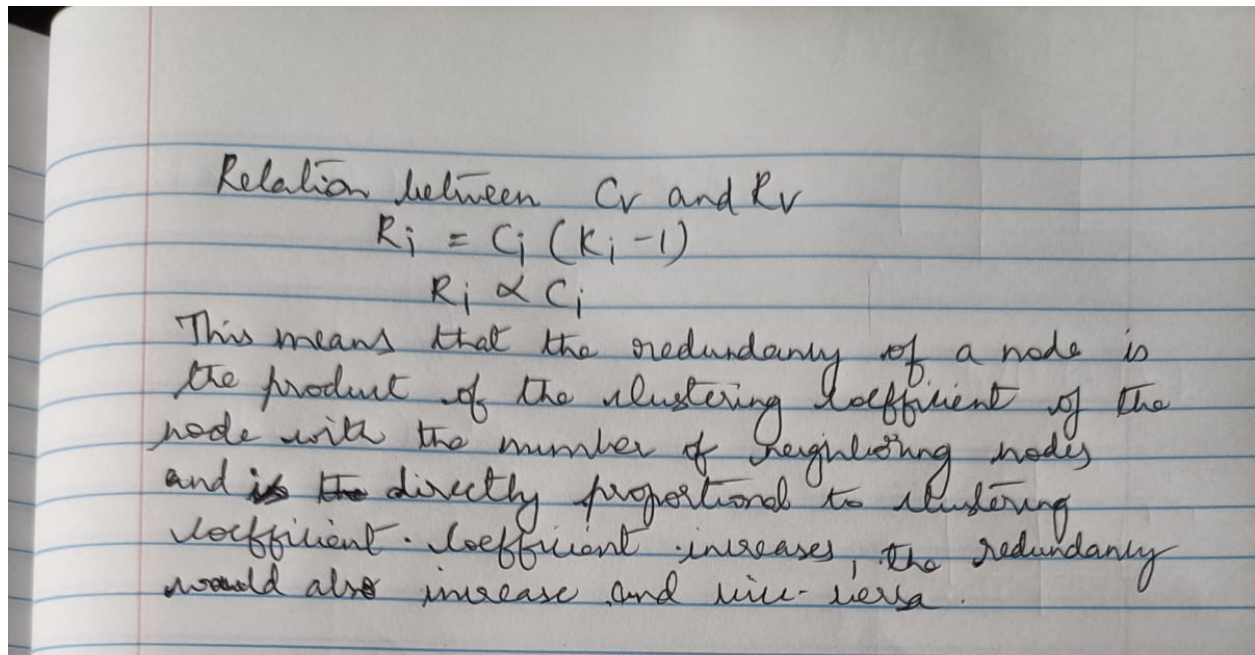 Relation between Cv and Rv
Ri = Ci (Ki - 1)
Ri ∝ Ci
This means that the redundancy of a node is
the product of the clustering coefficient of the
node with the number of neighboring nodes
and is the directly proportional to clustering
coefficient. Coefficient increases, the redundancy
would also increase and vice-versa.